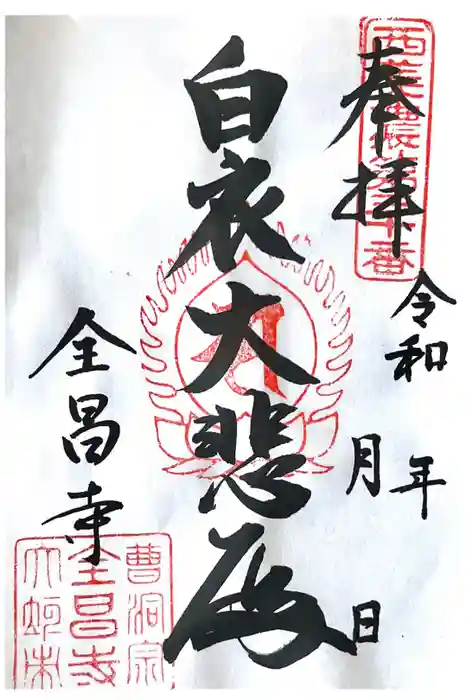 奉拝
西美濃
番
令和 年
月 日
白衣大悲殿
全昌寺
曹洞宗
全昌寺
大垣市